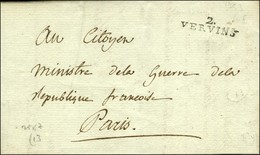 2.
VERVINS
Au Citoyen
Ministre de la Guerre de la
Republique francoise
Paris.